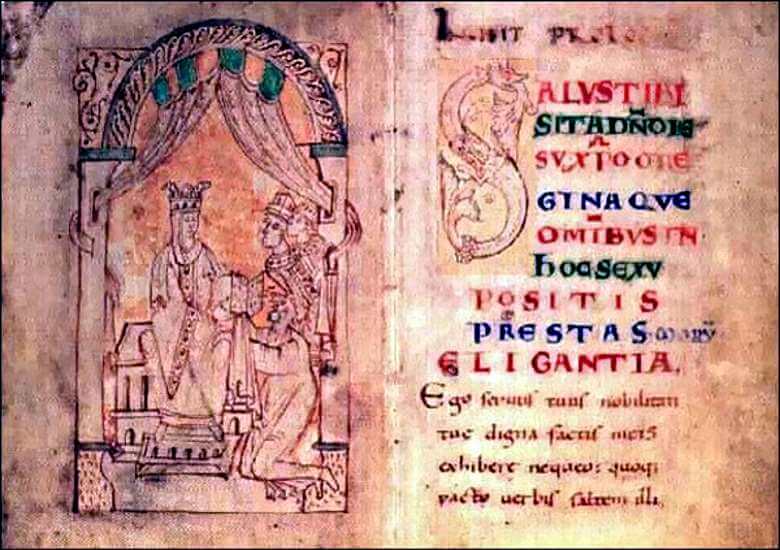 SALVSTIBI
SITADÑO
SVXPOORE
GINAQVE
OMIBVSIN
hOCSEXV
POSITIS
PRESTAS
ELIGANTIA.
Ego seruus tuus nobilitati
tue digna factis meis
exhibere nequeo; quoq;
pacto uerbis saltem illi,